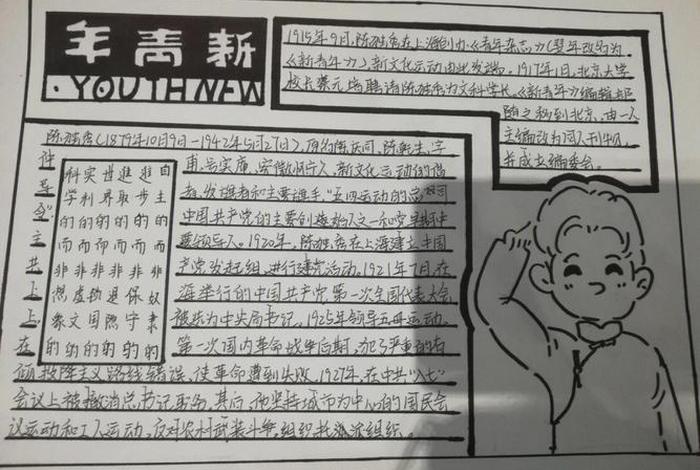 年青新
·YOUTH NEW
1915年9月,陈独秀在上海创办《青年杂志》(翌年改名为
《新青年》),新文化运动由此发端。1917年1月,北京大学
校长蔡元培聘请陈独秀为文科学长,《新青年》编辑部
随之移到北京,由一人
主编改为同人刊物,
并成立编委会。
陈独秀(1879年10月9日-1942年5月27日),原名陈庆同、陈乾生,字
仲甫,号实庵,安徽怀宁人,新文化运动的倡
导者、发起者和主要旗手,"五四运动的总司
令",中国共产党的主要创始人之一和党早期
主要领导人。1920年,陈独秀在上海建立中国
共产党发起组,进行建党活动。1921年7月在
上海举行的中国共产党第一次全国代表大会
上,被选为中央局书记。1925年领导五卅运动。
在第一次国内革命战争后期,犯了严重的右
倾投降主义路线错误,使革命遭到失败。1927年,在中共"八七"
会议上被撤消总书记职务。其后,他坚持城市为中心的国民会
议运动和工人运动,反对农村武装斗争,组织托派组织。
自主的而非奴隶的
进步的而非保守的
进取的而非退隐的
世界的而非锁国的
实利的而非虚文的
科学的而非想象的